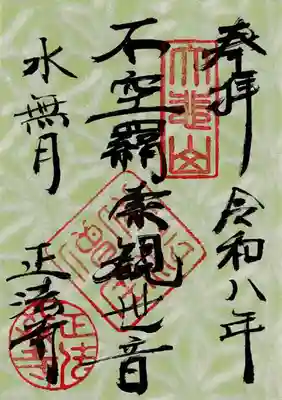 奉拝 令和八年
不空羂索観世音
水無月 正法寺
大悲山
正法寺